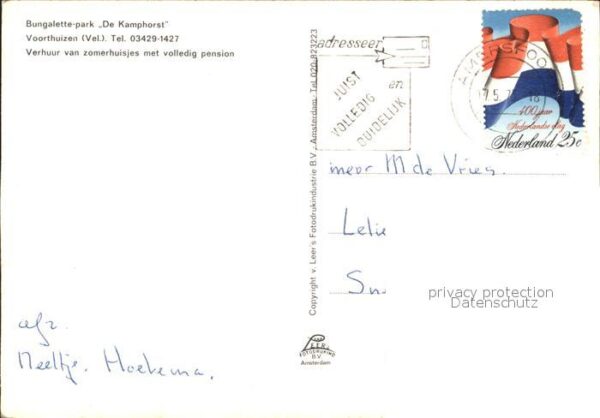 Bungalette-park „De Kamphorst"
Voorthuizen (Vel.) Tel. 03429-1427
Verhuur van zomerhuisjes met volledig pension
adresseer
JUIST
en
VOLLEDIG
DUIDELIJK
AMERSFOO
400 jaar
Nederlandse vlag
Nederland 25c
Copyright v. Leer's Fotodrukindustrie B.V. - Amsterdam, Tel. 020-823223
M de Vries.
Lelie
Sn
privacy protection
Datenschutz
afz.
Meeltje. Hoekema.
LEER
FOTODRUKIND
B.V.
Amsterdam